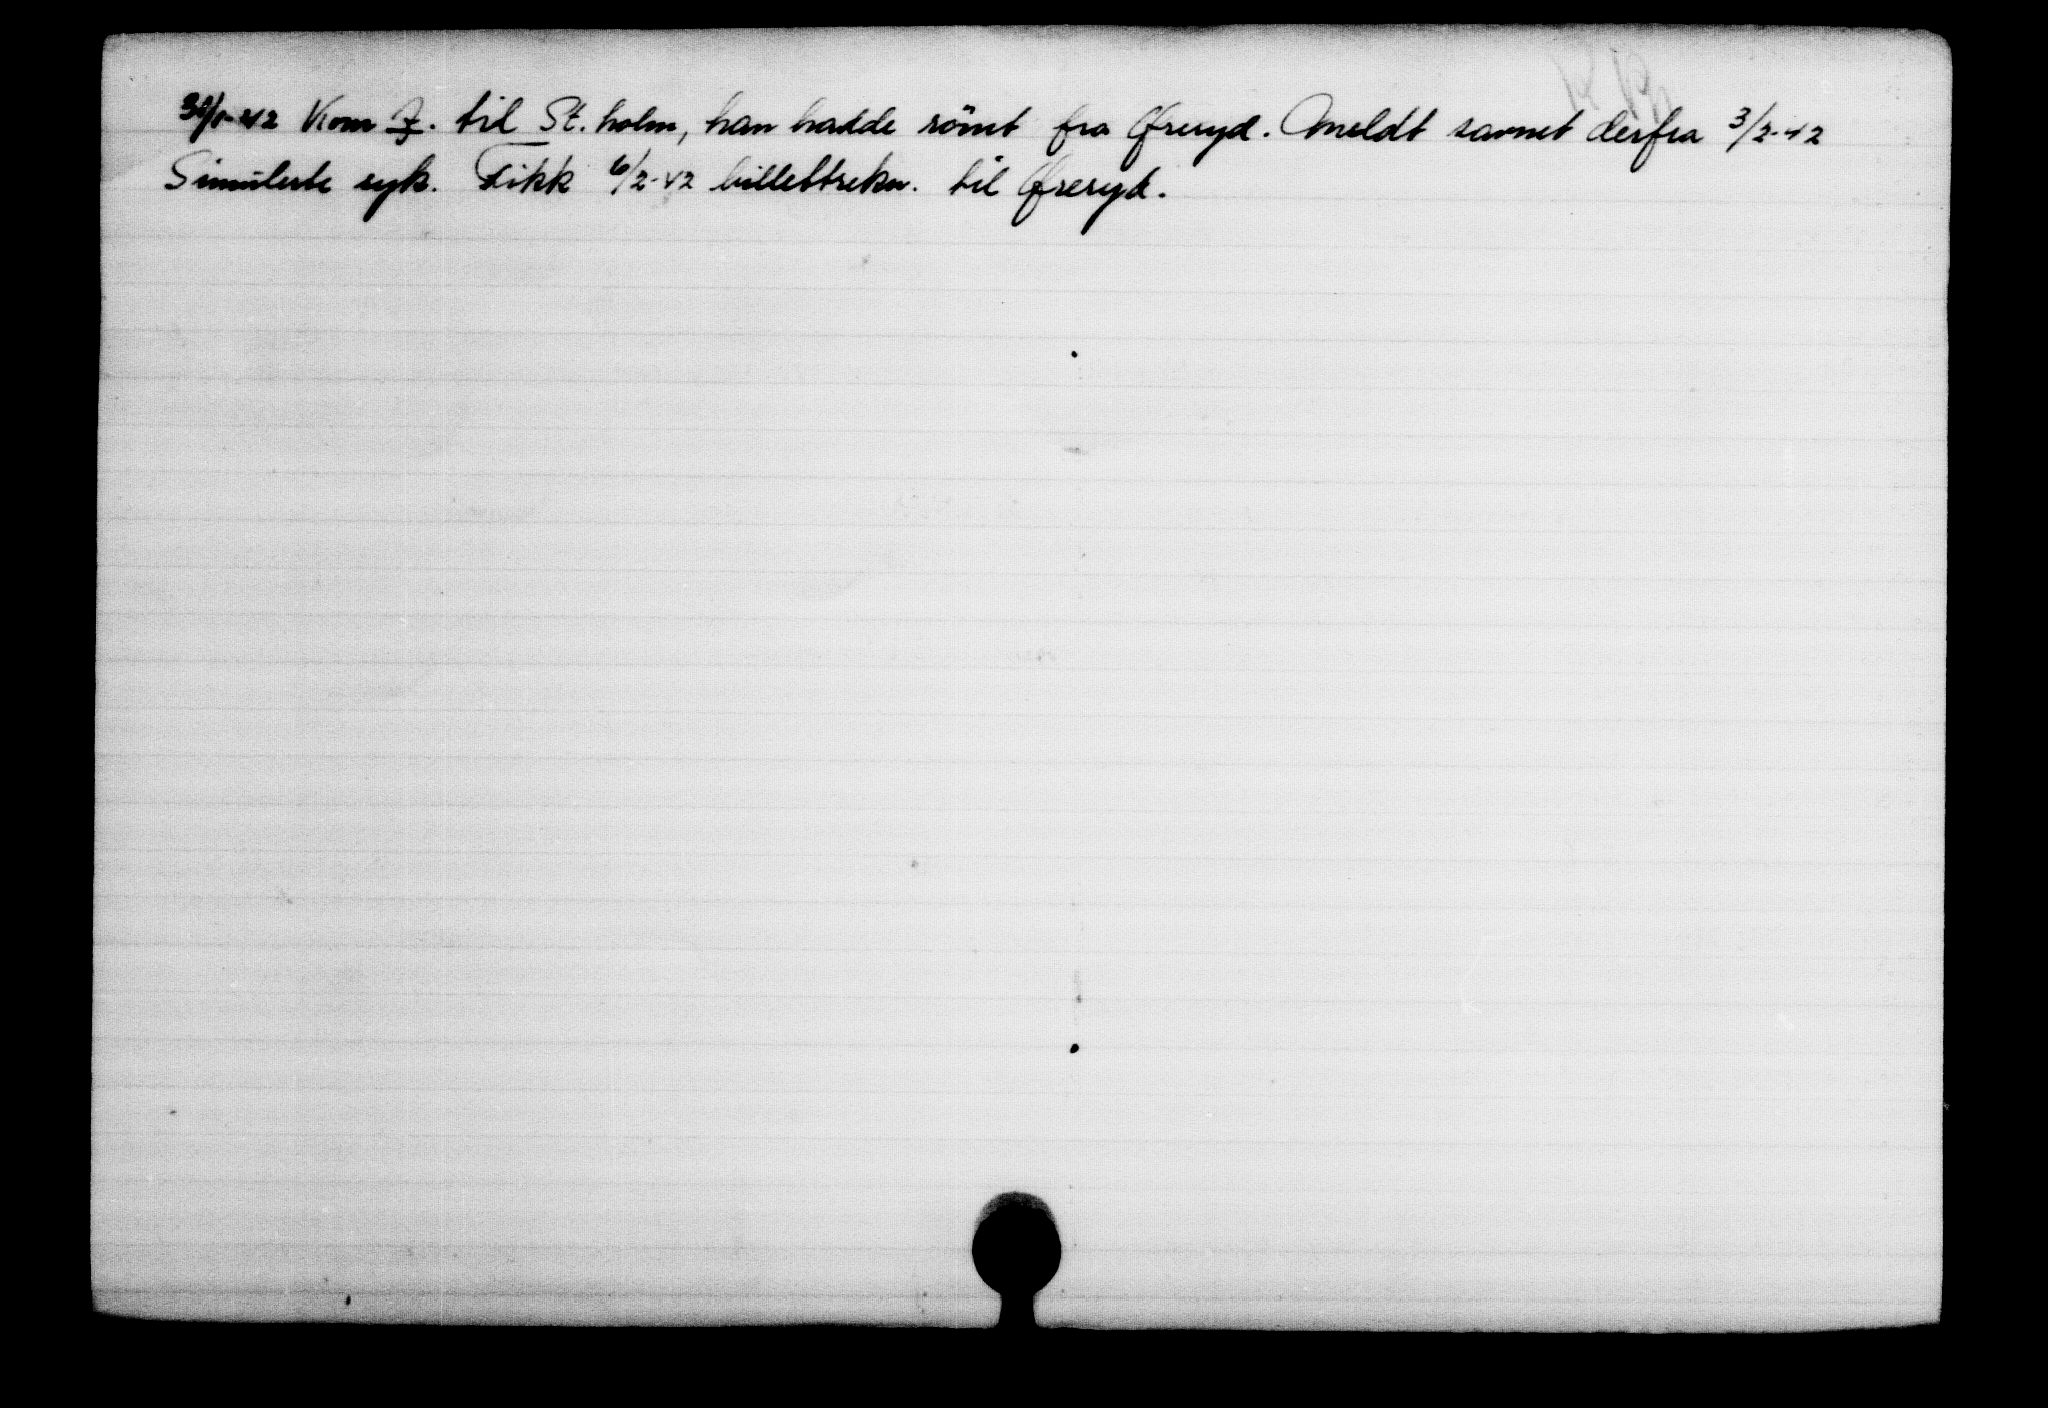 30/1-42 Kom J. til St. holm, han hadde römt fra Öreryd. Meldt savnet derfra 3/2-42
Simulerte syk. Fikk 6/2-42 billettrekv. til Öreryd.